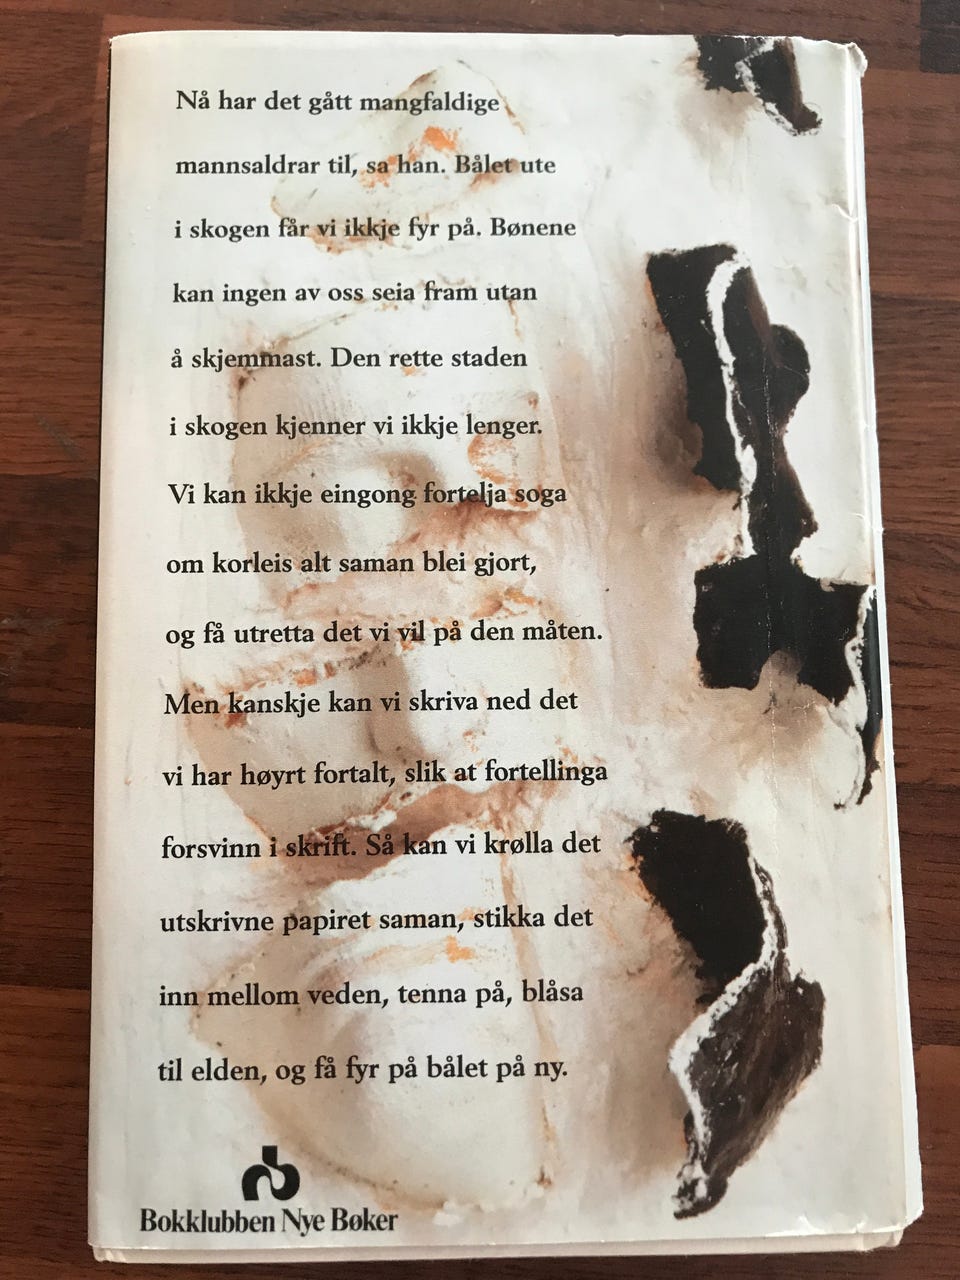 Nå har det gått mangfaldige
mannsaldrar til, sa han. Bålet ute
i skogen får vi ikkje fyr på. Bønene
kan ingen av oss seia fram utan
å skjemmast. Den rette staden
i skogen kjenner vi ikkje lenger.
Vi kan ikkje eingong fortelja soga
om korleis alt saman blei gjort,
og få utretta det vi vil på den måten.
Men kanskje kan vi skriva ned det
vi har høyrt fortalt, slik at fortellinga
forsvinn i skrift. Så kan vi krølla det
utskrivne papiret saman, stikka det
inn mellom veden, tenna på, blåsa
til elden, og få fyr på bålet på ny.
Bokklubben Nye Bøker